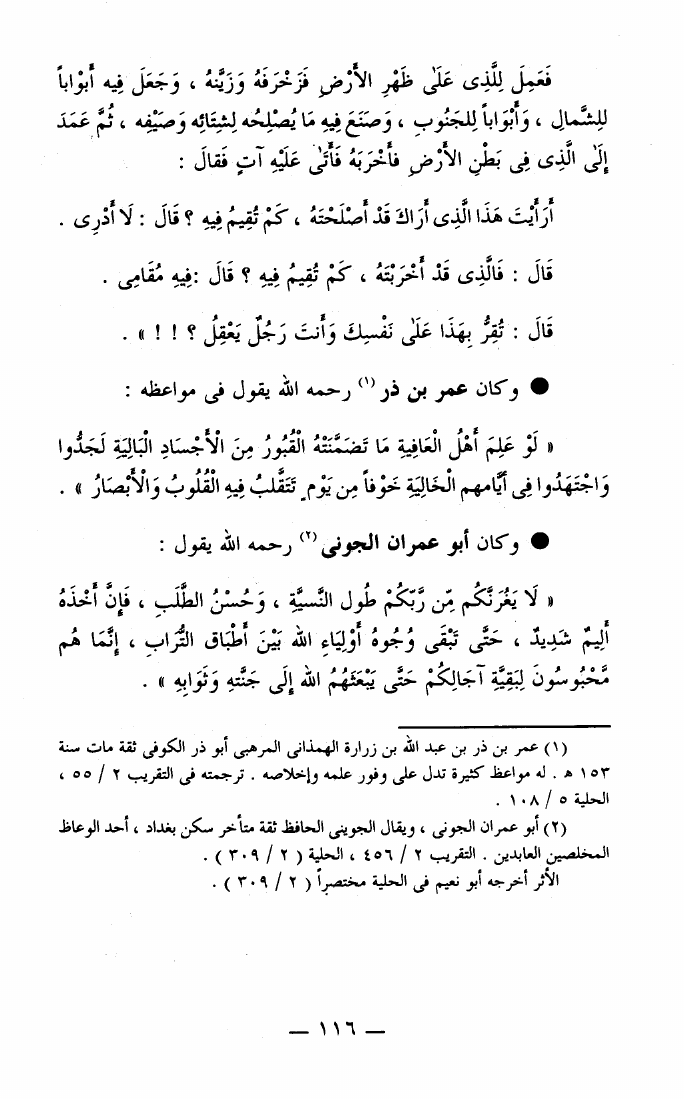 فَعَمِلَ لِلَّذِى عَلَىٰ ظَهْرِ الأَرْضِ فَزَخْرَفَهُ وَزَيَّنهُ ، وَجَعَلَ فِيه أَبْوَاباً
لِلشَّمالِ ، وَأَبْوَاباً لِلجَنُوبِ ، وَصَنَعَ فِيهِ مَا يُصْلِحُه لِشِتَائِهِ وَصَيْفِه ، ثُمَّ عَمَدَ
إِلَىٰ الَّذِى فِى بَطْنِ الأَرْضِ فأَخْرَبَهُ فَأَتَىٰ عَلَيْهِ آتٍ فَقالَ :
أَرَأَيْتَ هَذَا الَّذِى أَرَاكَ قَدْ أَصْلَحْتَهُ ، كَمْ تُقِيمُ فِيهِ ؟ قَالَ : لَا أَدْرِى .
قَالَ : فَالَّذِى قَدْ أَخْرَبْتَهُ ، كَمْ تُقِيمُ فِيهِ ؟ قَالَ :فِيهِ مُقَامِى .
قَالَ : تُقِرُّ بِهَذَا عَلَىٰ نَفْسِكَ وَأَنتَ رَجُلٌ يَعْقِلُ ؟ ! ! » .
● وكان عمر بن ذر (١) رحمه الله يقول فى مواعظه :
« لَوْ عَلِمَ أَهْلُ الْعَافِيةِ مَا تَضَمَّنَتْهُ الْقُبُورُ مِنَ الْأَجْسَادِ الْبَالِيَةِ لَجَدُّوا
وَاجْتَهَدُوا فِى أَيَّامهِم الْخَالِيَةِ خَوْفاً مِن يَوْمٍ تَتَقَّلبُ فِيهِ الْقُلُوبُ وَالْأَبْصَارُ » .
● وكان أبو عمران الجونى (٢) رحمه الله يقول :
« لَا يَغُرَنَّكُم مِّن رَّبِّكُمْ طُول النَّسِيَّةِ ، وَحُسْنُ الطَّلَبِ ، فَإِنَّ أَخْذَهُ
أَلِيمٌ شَدِيدٌ ، حَتَّى تَبْقَى وُجُوهُ أَوْلِيَاءِ الله بَيْنَ أَطْبَاق التُّرَابِ ، إِنَّمَا هُم
مَّحْبُوسُونَ لِبَقِيَّةِ آجَالِكُمْ حَتَّى يَبْعَثَهُمُ الله إِلَى جَنَّتهِ وَثَوَابِهِ » .
(١) عمر بن ذر بن عبد الله بن زرارة الهمذانى المرهبى أبو ذر الكوفى ثقة مات سنة
١٥٣ هـ . له مواعظ كثيرة تدل على وفور علمه وإخلاصه . ترجمته فى التقريب ٢ / ٥٥ ،
الحلية ٥ / ١٠٨ .
(٢) أبو عمران الجونى ، ويقال الجوينى الحافظ ثقة متأخر سكن بغداد ، أحد الوعاظ
المخلصين العابدين . التقريب ٢ / ٤٥٦ ، الحلية ( ٢ / ٣٠٩ ) .
الأثر أخرجه أبو نعيم فى الحلية مختصراً ( ٢ / ٣٠٩ ) .
— ١١٦ —